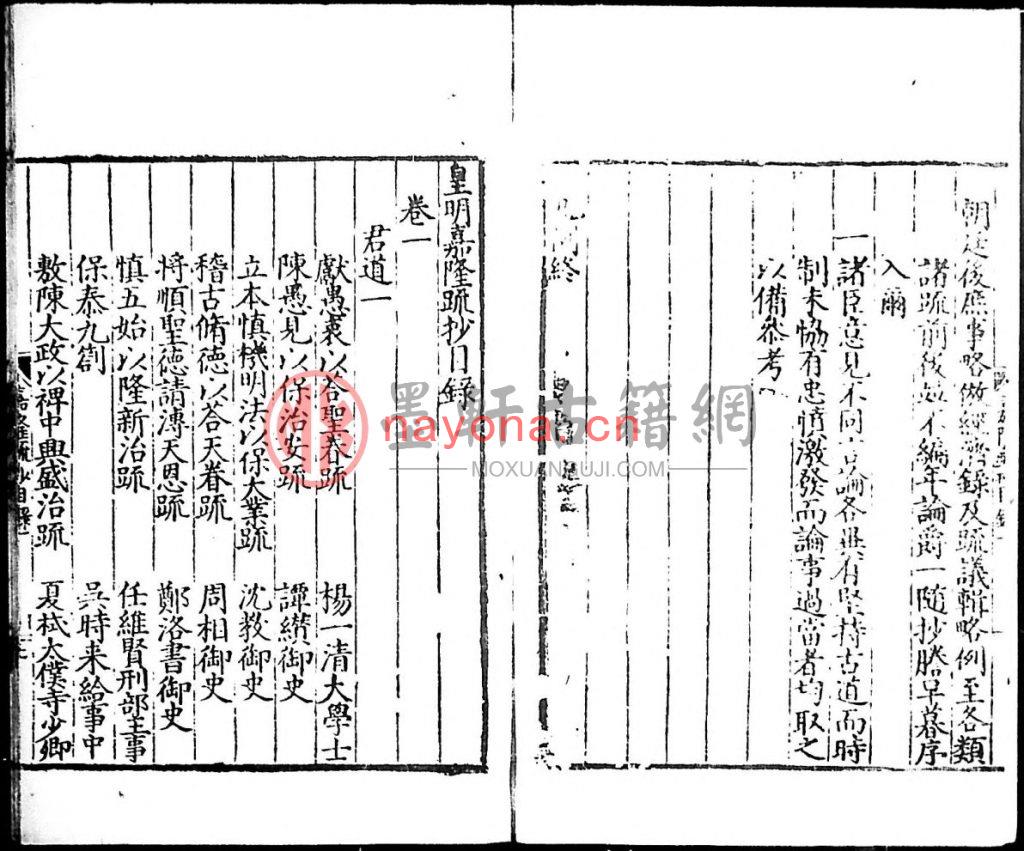 朝廷後庶事略倣經濟錄及疏議輯略例至各類
諸疏前後並不編年論爵一隨抄謄早暮序
入爾
一諸臣意見不同言論各異有堅持古道而時
制未協有忠憤激發而論事過當者均取之
以備參考
終
皇明嘉隆疏抄目錄
卷一
君道一
獻愚衷以答聖眷疏 楊一清大學士
陳愚見以保治安疏 譚纘御史
立本慎機明法以保大業疏 沈教御史
稽古脩德以答天眷疏 周相御史
將順聖德請溥天恩疏 鄭洛書御史
慎五始以隆新治疏 任維賢刑部主事
保泰九劄 吳時来給事中
敷陳大政以裨中興盛治疏 夏栻太僕寺少卿
嘉隆疏抄目錄
墨軒古籍網
nayona.cn
MOXUANGUJI.COM